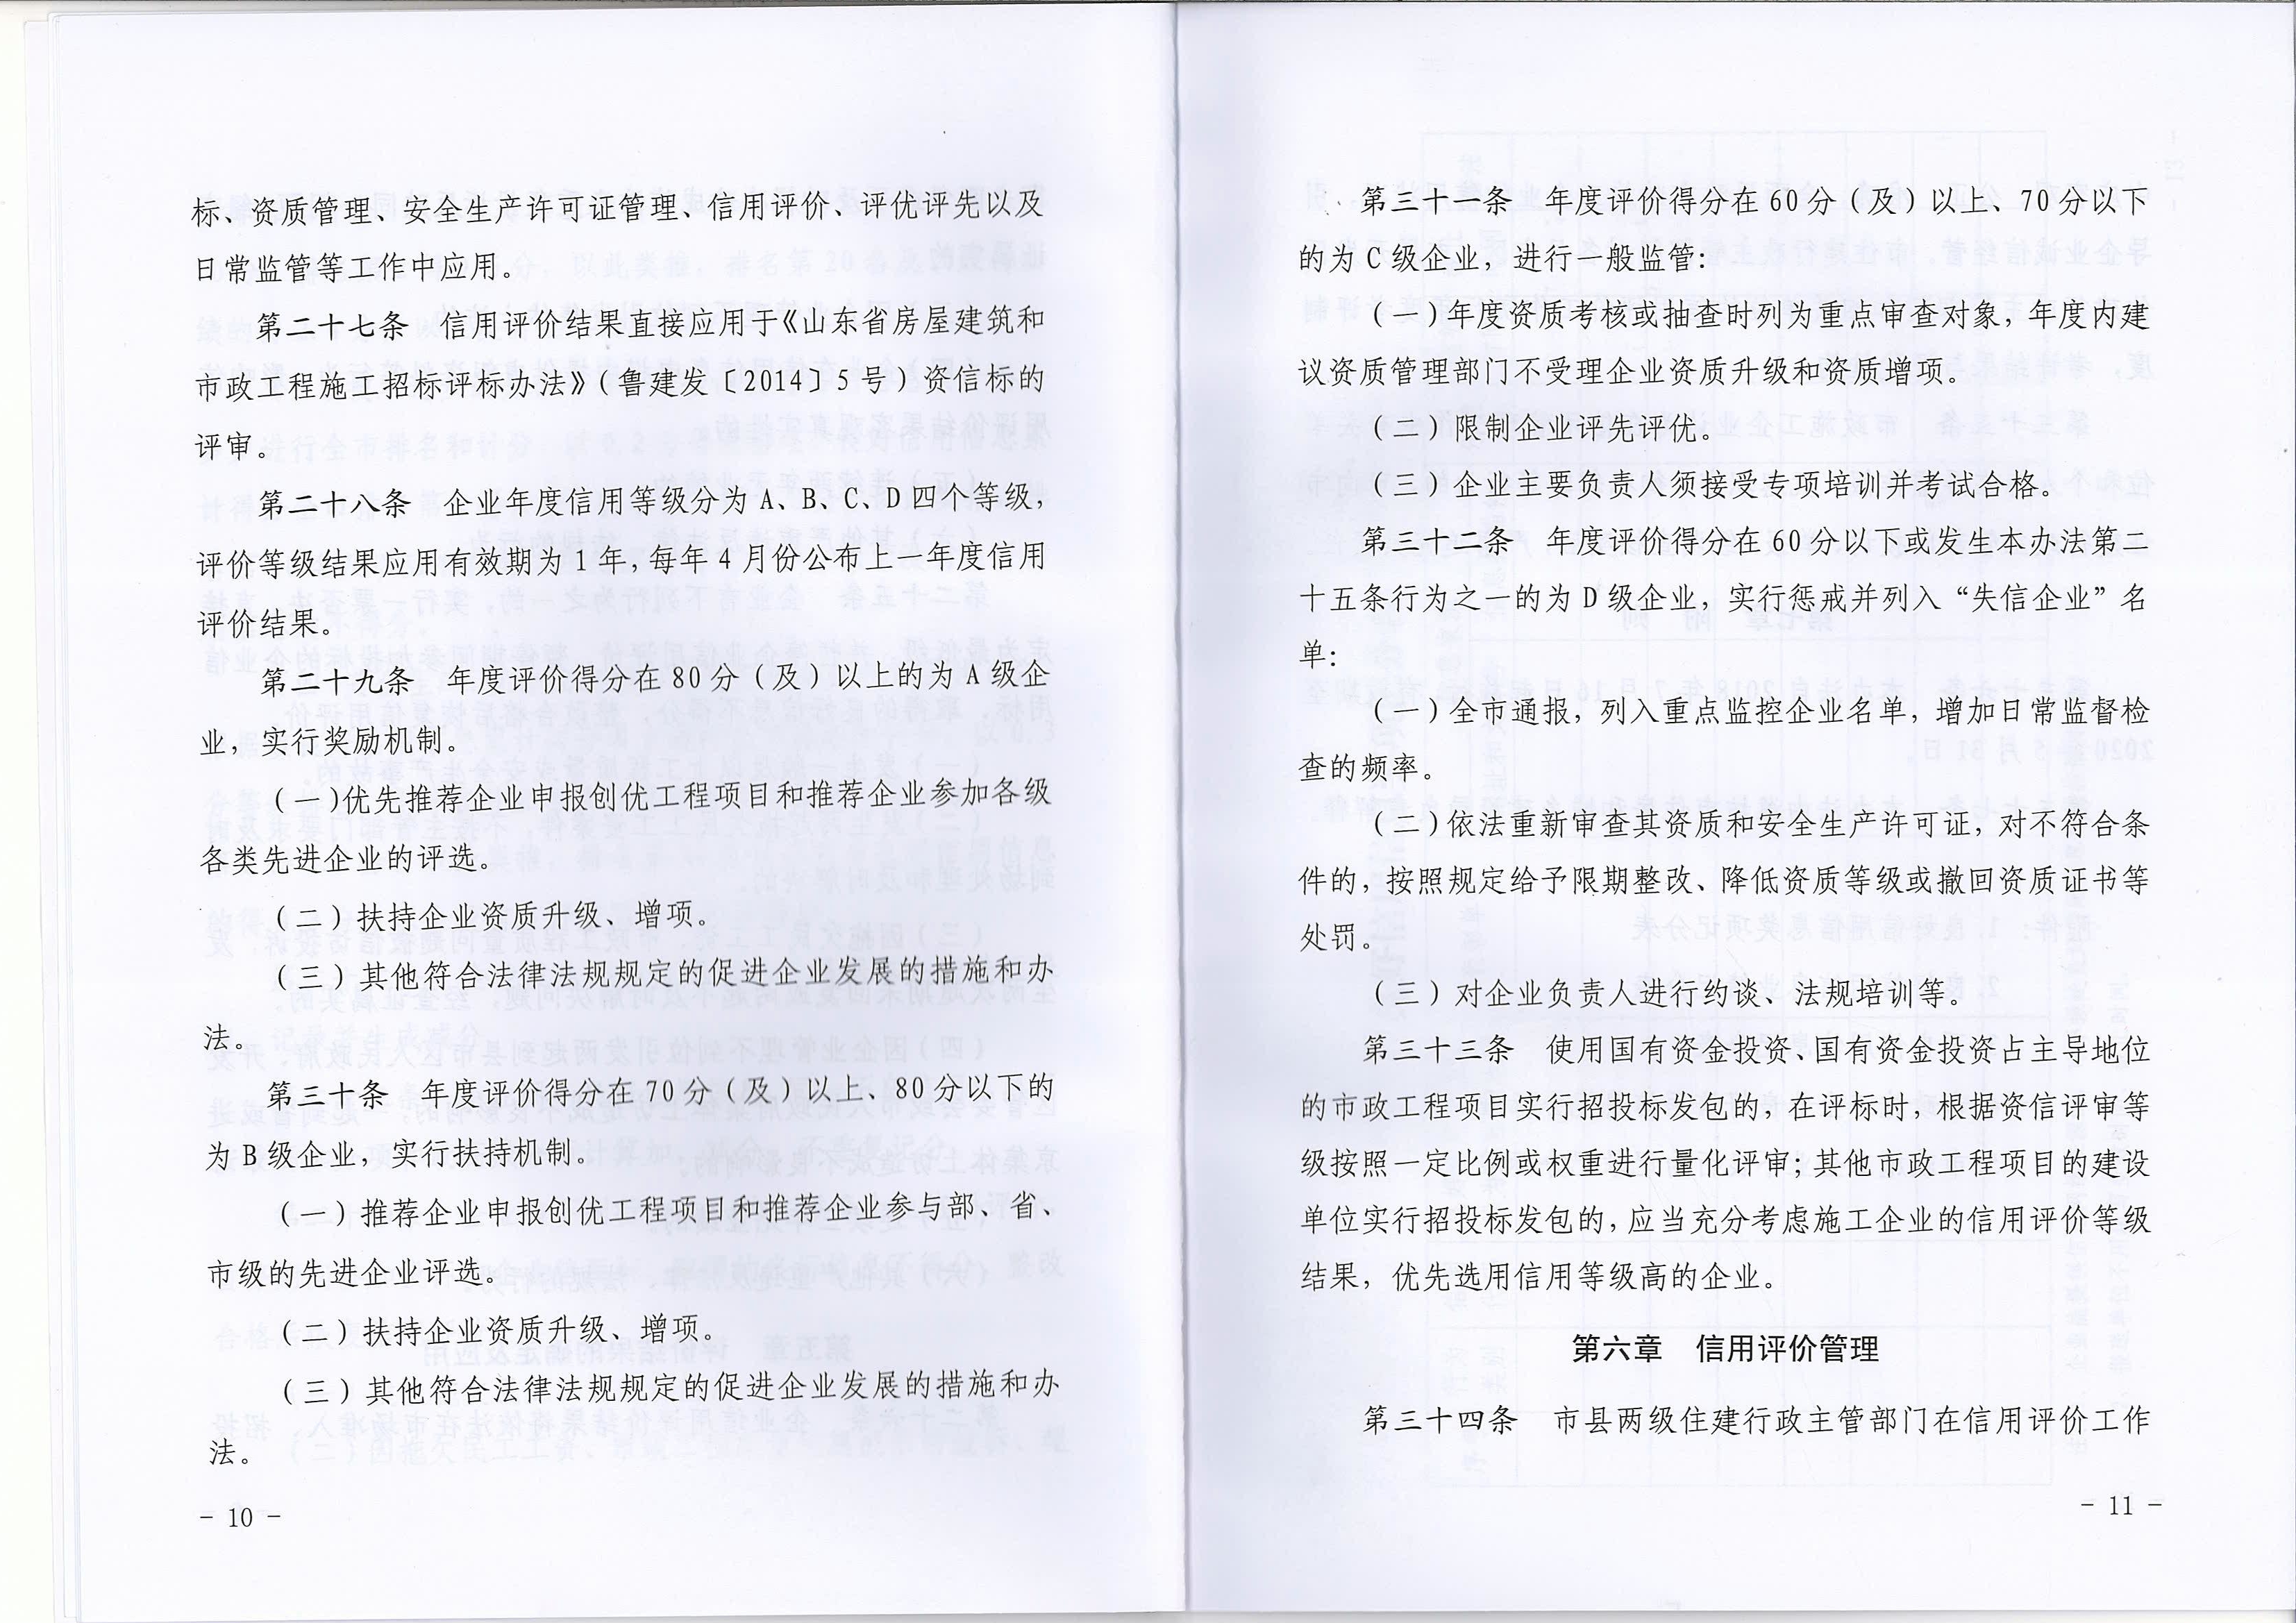 标、资质管理、安全生产许可证管理、信用评价、评优评先以及
日常监管等工作中应用。
第二十七条　信用评价结果直接应用于《山东省房屋建筑和
市政工程施工招标评标办法》（鲁建发〔2014〕5号）资信标的
评审。
第二十八条　企业年度信用等级分为 A、B、C、D 四个等级，
评价等级结果应用有效期为1年，每年4月份公布上一年度信用
评价结果。
第二十九条　年度评价得分在80分（及）以上的为A级企
业，实行奖励机制。
（一）优先推荐企业申报创优工程项目和推荐企业参加各级
各类先进企业的评选。
（二）扶持企业资质升级、增项。
（三）其他符合法律法规规定的促进企业发展的措施和办
法。
第三十条　年度评价得分在70分（及）以上、80分以下的
为B级企业，实行扶持机制。
（一）推荐企业申报创优工程项目和推荐企业参与部、省、
市级的先进企业评选。
（二）扶持企业资质升级、增项。
（三）其他符合法律法规规定的促进企业发展的措施和办
法。
- 10 -
第三十一条　年度评价得分在60分（及）以上、70分以下
的为C级企业，进行一般监管：
（一）年度资质考核或抽查时列为重点审查对象，年度内建
议资质管理部门不受理企业资质升级和资质增项。
（二）限制企业评先评优。
（三）企业主要负责人须接受专项培训并考试合格。
第三十二条　年度评价得分在60分以下或发生本办法第二
十五条行为之一的为D级企业，实行惩戒并列入“失信企业”名
单：
（一）全市通报，列入重点监控企业名单，增加日常监督检
查的频率。
（二）依法重新审查其资质和安全生产许可证，对不符合条
件的，按照规定给予限期整改、降低资质等级或撤回资质证书等
处罚。
（三）对企业负责人进行约谈、法规培训等。
第三十三条　使用国有资金投资、国有资金投资占主导地位
的市政工程项目实行招投标发包的，在评标时，根据资信评审等
级按照一定比例或权重进行量化评审；其他市政工程项目的建设
单位实行招投标发包的，应当充分考虑施工企业的信用评价等级
结果，优先选用信用等级高的企业。
第六章　信用评价管理
第三十四条　市县两级住建行政主管部门在信用评价工作
- 11 -